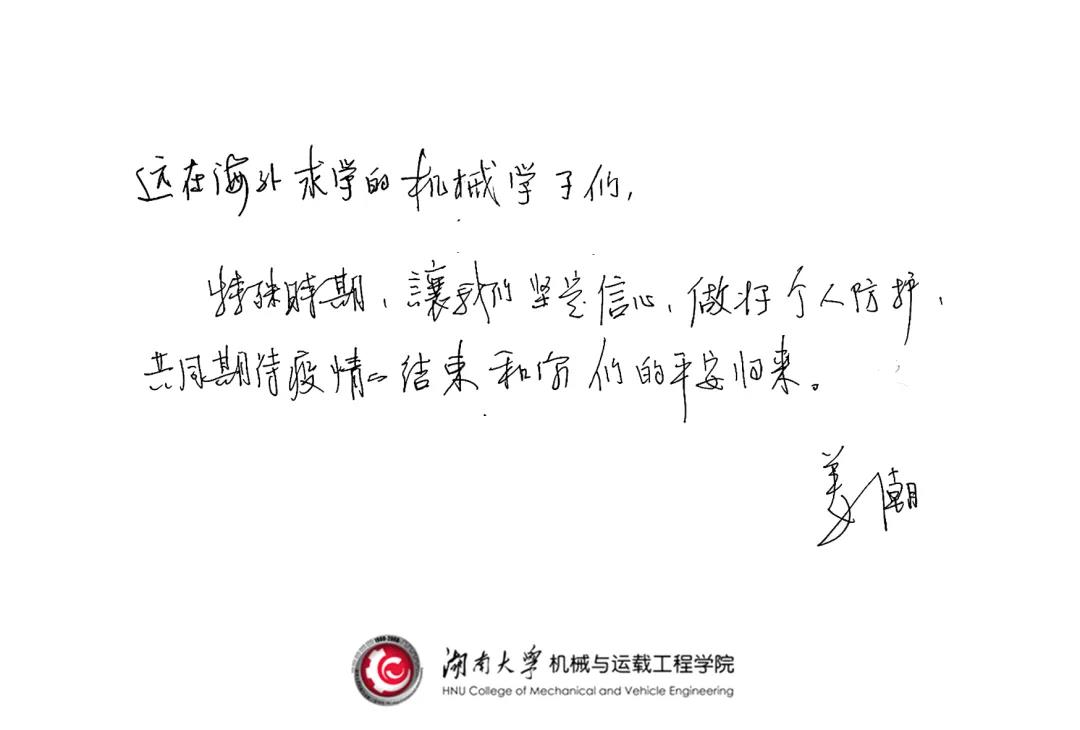 远在海外求学的机械学子们,
特殊時期,讓我们坚定信心,做好个人防护,
共同期待疫情的结束和你们的平安归来。
姜潮
1908-2008
湖南大学 机械与运载工程学院
HNU College of Mechanical and Vehicle Engineering